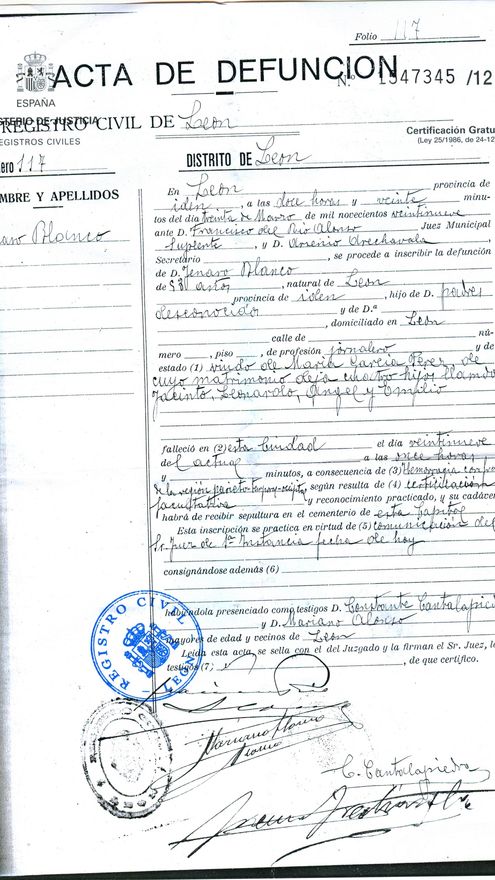 Folio 117
ACTA DE DEFUNCION
N.º 1547345 /12
ESPAÑA
MINISTERIO DE JUSTICIA
REGISTROS CIVILES
REGISTRO CIVIL DE León
Certificación Gratu
(Ley 25/1986, de 24-12
ero 117
DISTRITO DE León
MBRE Y APELLIDOS
naro Blanco
En León, provincia de
iden, a las doce horas y veinte minu-
tos del día treinta de Marzo de mil novecientos veintinueve
ante D. Francisco del Río Alonso Juez Municipal
Suplente, y D. Arsenio Arechavala,
Secretario, se procede a inscribir la defunción
de D. Jenaro Blanco
de 53 años, natural de León
provincia de iden, hijo de D. padres
desconocidos y de D.ª
, domiciliado en León
calle de nú-
mero, piso, de profesión jornalero y de
estado (1) viudo de María García Pérez, de
cuyo matrimonio deja cuatro hijos llamados
Jacinto, Leonardo, Angel y Emilio
falleció en (2) esta Ciudad el día veintinueve
del actual a las once horas
y minutos, a consecuencia de (3) Hemorragia
de la región, según resulta de (4) certificación
facultativa y reconocimiento practicado, y su cadáver
habrá de recibir sepultura en el cementerio de esta Capital
Esta inscripción se practica en virtud de (5) comunicación del
Sr. Juez de 1ª Instancia fecha de hoy
consignándose además (6)
habiéndola presenciado como testigos D. Constante Cantalapie
y D. Mariano Alonso
mayores de edad y vecinos de León
Leída esta acta, se sella con el del Juzgado y la firman el Sr. Juez, lo
testigos (7), de que certifico.
REGISTRO CIVIL
LEON
Mariano Alonso
C. Cantalapiedra